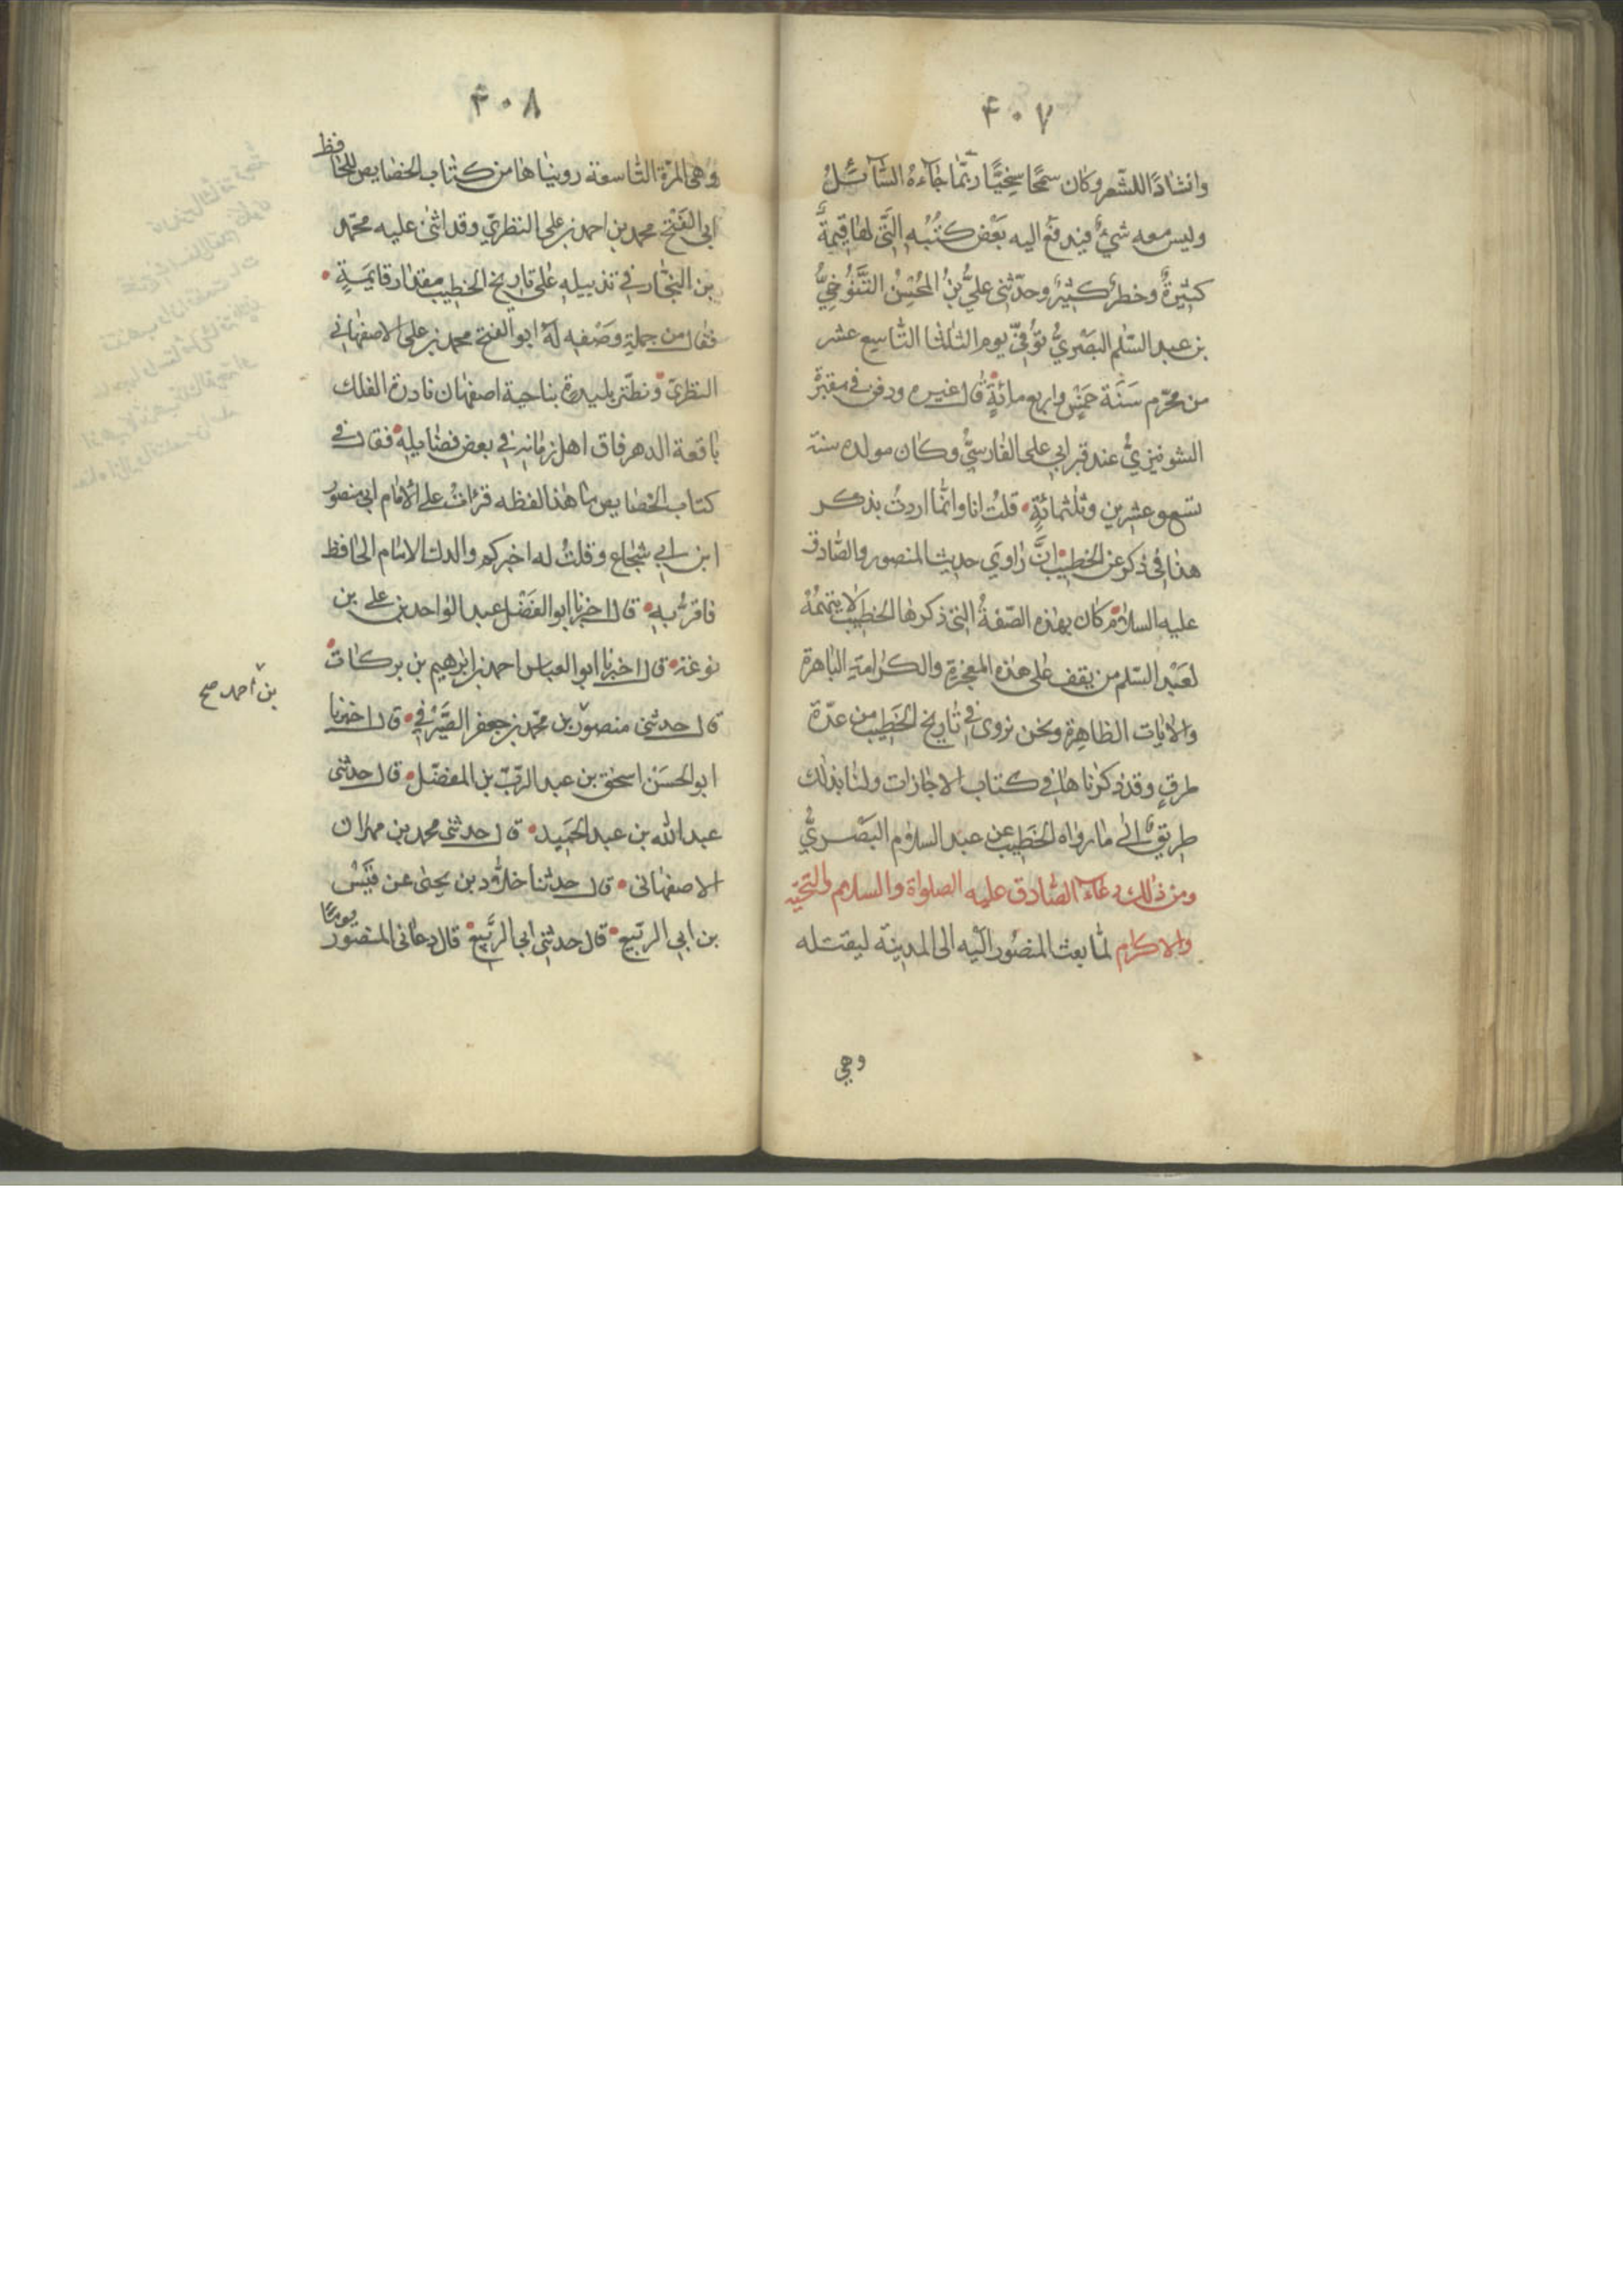 ۴۰۷
وانشادًا للشعر وكان سمحًا سخيًّا ربّما جاءه السّائل
وليس معه شئ فيدفع اليه بَعْض كتُبُه الَّتى لها قيمةٌ
كبيرةٌ وخطرٌ كبيرٌ وحدّثنى علىُّ بنُ المُحْسِنُ التَّنوُخىُّ
بن عبد السّلم البَصْرىُّ توُفىّ يوم الثلثا التّاسِع عشر
من محرّم سَنَة خَمْس واربع مائةٍ قال غيره ودفن فى مقبرة
الشونيزىُّ عند قبر ابى على الفارسىُّ وكان مولده سنة
تسع وعشرين وثلثمائةٍ قلتُ انا وانّما اردتُ بذكر
هذا فى ذكر عن الخطيب انَّ راوىَ حديث المنصور والصّادق
عليه السلام كان بهذه الصّفةُ التى ذكرها الخطيب لا يتهمهُ
لعَبْد السّلم من يقف على هذه المعجزة والكرامةِ الباهرة
والايات الظاهِرة ونحن نروى فى تاريخ الخَطِيب من عدّة
طرقٍ وقد ذكرناها فى كتاب الاجازات ولنا بذلك
طريق الى ما رواه الخَطِيب عن عبد السلام البَصْرىُّ
ومن ذلك دعاء الصّادق عليه الصلواة والسلام والتحيّة
والاكرام لمّا بعث المنصُور اليه الى المدينة ليقتله
وهى
۴۰۸
وهى المرّة التّاسعة رويناها من كتاب الخصايص للحافظ
ابى الفَتْح محمد بن احمد بن على النطنزىّ وقد اثنى عليه محمّد
بن النجّار فى تذييله على تاريخ الخطيب مقدار قايمَةٍ
فقال من جملةِ وَصْفِه لهُ ابو الفتح محمد بن على الاصفهانى
النطنزىّ ونطنز بليدة بناحية اصفهان نادرة الفلك
باقعة الدهر فاق اهل زمانه فى بعض فضايله فقال فى
كتاب الخصايص ما هذا لفظه قرأتُ على الامام ابى منصور
ابن ابى شجاع وقلتُ له اخبركم والدك الامام الحافظ
فاقرَّ به قال اخبرنا ابو الفَضْل عبد الواحد بن على بن
نوغة قال اخبرنا ابو العباس احمد بن ابرهيم بن بركات
قال حدثنى منصور بن محمّد بن جعفر الصَّيْرَفى قال اخبرنا
بن احمد صح
ابو الحسَنْ اسحق بن عبد الربّ بن المفضّل قال حدثنى
عبد الله بن عبد الحَمِيد قال حدثنى محمد بن مهران
الاصفهانى قال حدثنا خلاّد بن يحيى عن قَيْسْ
بن ابى الرّبيع قال حدثنى ابى الرَّبيع قال دعانى المنصور يومًا